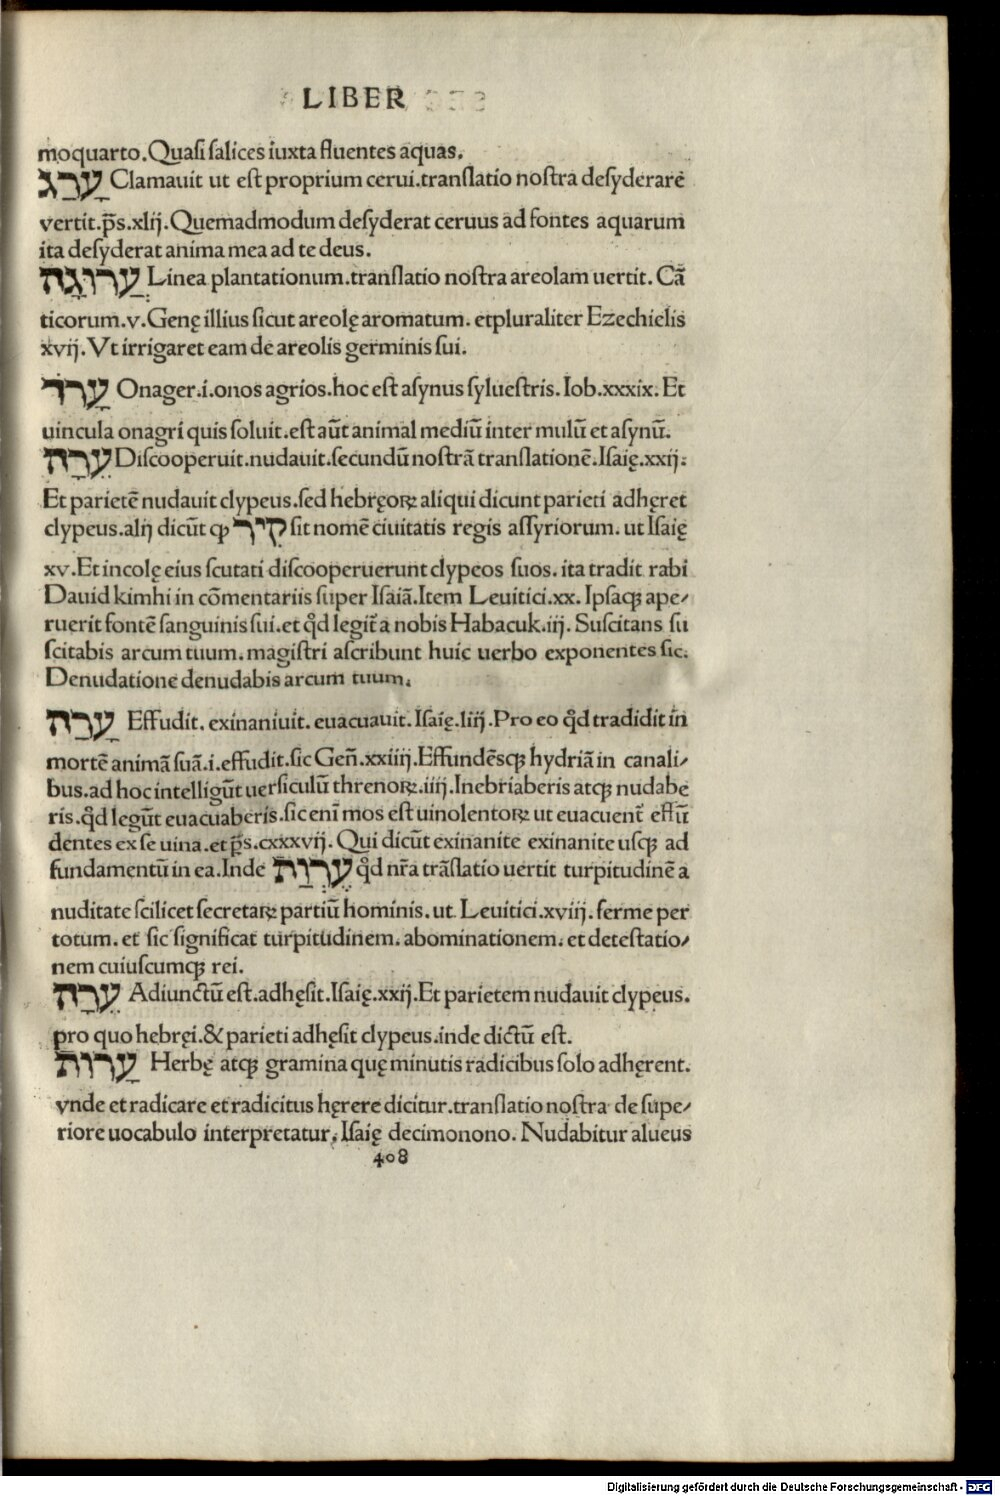 LIBER
moquarto. Quasi salices iuxta fluentes aquas.
עָרַג Clamauit ut est proprium cerui. translatio nostra desyderare
vertit. ps̄. xlij. Quemadmodum desyderat ceruus ad fontes aquarum
ita desyderat anima mea ad te deus.
עֲרוּגָה Linea plantationum. translatio nostra areolam uertit. Cā
ticorum. v. Genę illius sicut areolę aromatum. et pluraliter Ezechielis
xvij. Vt irrigaret eam de areolis germinis sui.
עָרָד Onager. i. onos agrios. hoc est asynus syluestris. Iob. xxxix. Et
uincula onagri quis soluit. est aūt animal mediū inter mulū et asynū.
עֵרָה Discooperuit. nudauit. secundū nostrā translationē. Isaię. xxij.
Et parietē nudauit clypeus. sed hebręoꝝ aliqui dicunt parieti adhęret
clypeus. alij dicūt ꝙ קִיר sit nomē ciuitatis regis assyriorum. ut Isaię
xv. Et incolę eius scutati discooperuerunt clypeos suos. ita tradit rabi
Dauid kimhi in cōmentariis super Isaiā. Item Leuitici. xx. Ipsaqꝫ ape⸗
ruerit fontē sanguinis sui. et qd̄ legit̄ a nobis Habacuk. iij. Suscitans su
scitabis arcum tuum. magistri ascribunt huic uerbo exponentes sic.
Denudatione denudabis arcum tuum.
עָרַה Effudit. exinaniuit. euacuauit. Isaię. liij. Pro eo qd̄ tradidit in
mortē animā suā. i. effudit. sic Geñ. xxiiij. Effundēsqꝫ hydriā in canali⸗
bus. ad hoc intelligūt uersiculū threnoꝝ. iiij. Inebriaberis atqꝫ nudabe
ris. qd̄ legūt euacuaberis. sic enī mos est uinolentoꝝ ut euacuent̄ effū
dentes ex se uina. et ps̄. cxxxvij. Qui dicūt exinanite exinanite usqꝫ ad
fundamentū in ea. Inde עֶרְוַת qd̄ nr̄a trāslatio uertit turpitudinē a
nuditate scilicet secretaꝝ partiū hominis. ut Leuitici. xviij. ferme per
totum. et sic significat turpitudinem. abominationem. et detestatio⸗
nem cuiuscumqꝫ rei.
עֵרָה Adiunctū est. adhęsit. Isaię. xxij. Et parietem nudauit clypeus.
pro quo hebręi. & parieti adhęsit clypeus. inde dictū est.
עָרוֹת Herbę atqꝫ gramina quę minutis radicibus solo adhęrent.
vnde et radicare et radicitus hęrere dicitur. translatio nostra de supe⸗
riore uocabulo interpretatur. Isaię decimonono. Nudabitur alueus
408
Digitalisierung gefördert durch die Deutsche Forschungsgemeinschaft - DFG